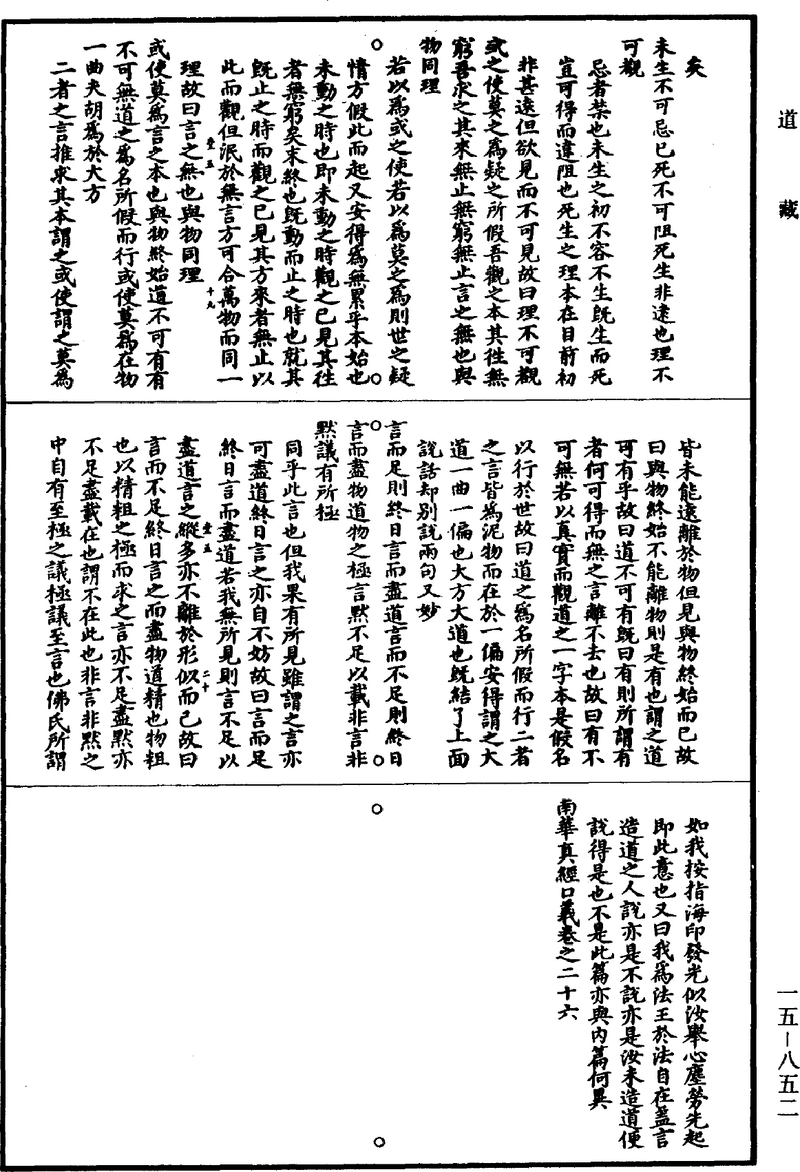 道藏
矣
未生不可忌已死不可阻死生非遠也理不
可覩
忌者禁也未生之初不容不生既生而死
豈可得而違阻也死生之理本在目前初
非甚遠但欲見而不可見故曰理不可覩
或之使莫之為疑之所假吾觀之本其往無
窮吾求之其來無止無窮無止言之無也與
物同理
若以為或之使若以為莫之為則世之疑
情方假此而起又安得為無累乎本始也
未動之時也即未動之時觀之已見其往
者無窮矣末終也既動而止之時也就其
既止之時而觀之已見其方來者無止以
此而觀但泯於無言方可合萬物而同一
理故曰言之無也與物同理
壹五
十九
或使莫為言之本也與物終始道不可有有
不可無道之為名所假而行或使莫為在物
一曲夫胡為於大方
二者之言推求其本謂之或使謂之莫為
皆未能遠離於物但見與物終始而已故
曰與物終始不能離物則是有也謂之道
可有乎故曰道不可有既曰有則所謂有
者何可得而無之言離不去也故曰有不
可無若以真實而觀道之一字本是假名
以行於世故曰道之為名所假而行二者
之言皆為泥物而在於一偏安得謂之大
道一曲一偏也大方大道也既結了上面
說話却別說兩句又妙
言而足則終日言而盡道言而不足則終日
言而盡物道物之極言默不足以載非言非
默議有所極
同乎此言也但我果有所見雖謂之言亦
可盡道終日言之亦自不妨故曰言而足
終日言而盡道若我無所見則言不足以
盡道言之縱多亦不離於形似而已故曰
壹五
二十
言而不足終日言之而盡物道精也物粗
也以精粗之極而求之言亦不足盡默亦
不足盡載在也謂不在此也非言非默之
中自有至極之議極議至言也佛氏所謂
如我按指海印發光似汝舉心塵勞先起
即此意也又曰我為法王於法自在蓋言
造道之人說亦是不說亦是汝未造道便
說得是也不是此篇亦與內篇何異
南華真經口義卷之二十六
一五－八五二